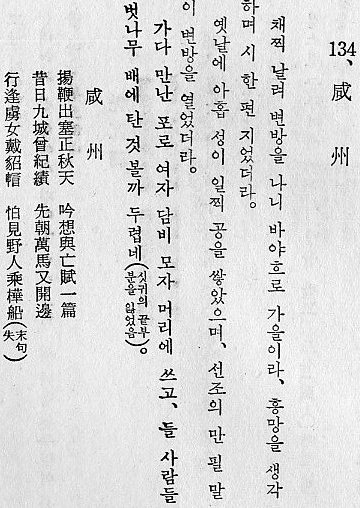 134、咸州
채찍 날려 변방을 나니 바야흐로 가을이라、흥망을 생각
하며 시 한 편 지었더라。
옛날에 아홉 성이 일찍 공을 쌓았으며、선조의 만 필 말
이 변방을 열었더라。
가다 만난 포로 여자 담비 모자 머리에 쓰고、들 사람들
벗나무 배에 탄 것 볼까 두렵네(싯귀의 끝부분을 잃었음)。
咸州
揚鞭出塞正秋天 吟想與亡賦一篇
昔日九城曾紀績 先朝萬馬又開邊
行逢虜女戴貂帽 怕見野人乘樺船(末句失)